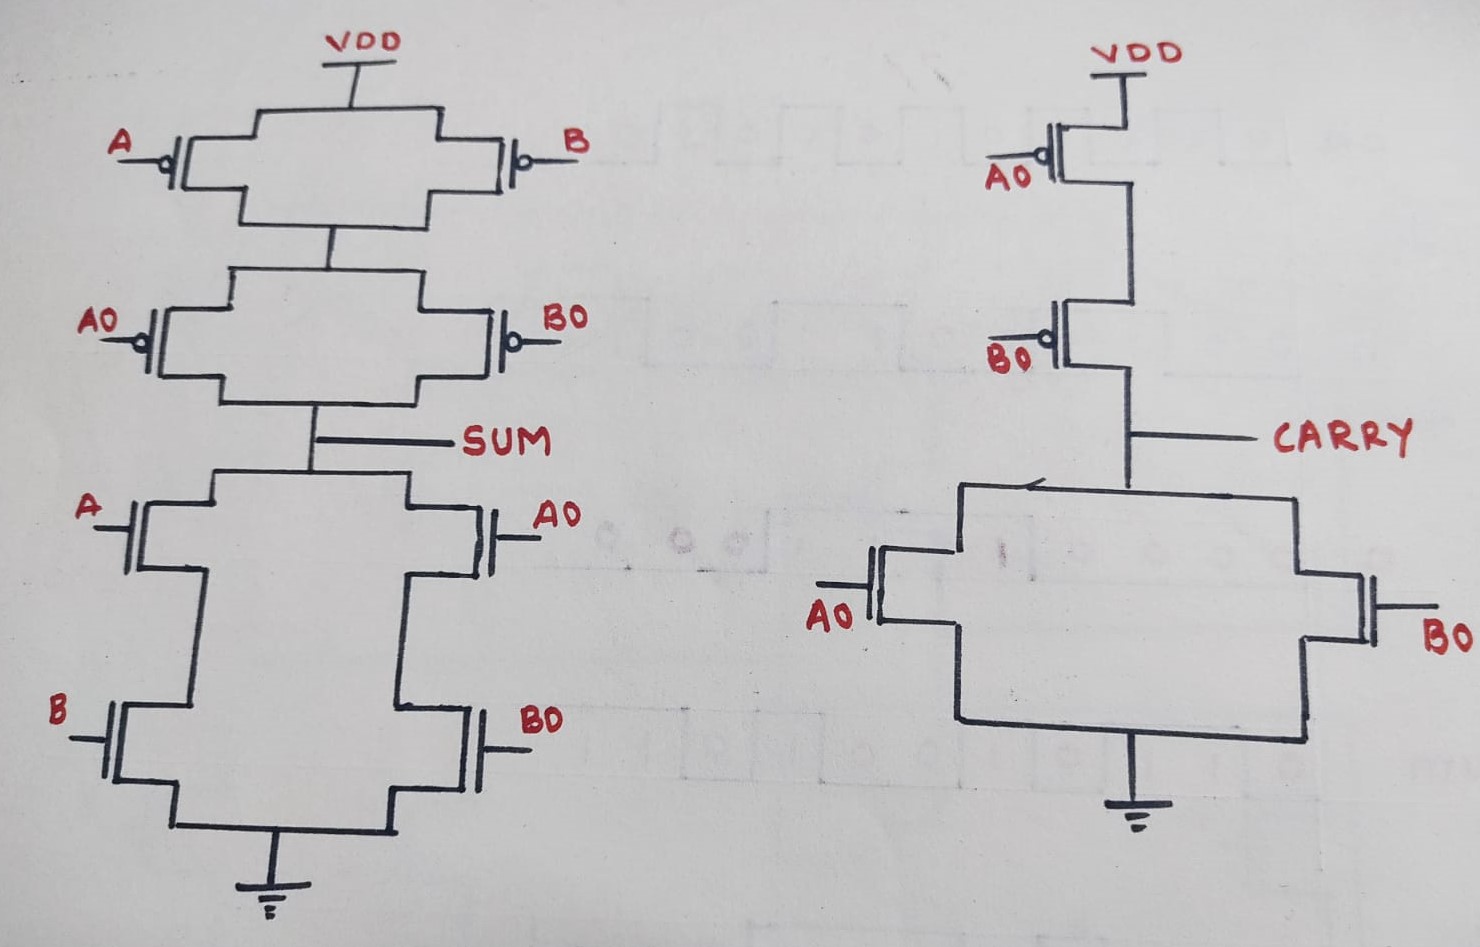 VDD
A
B
A0
B0
SUM
A
A0
B
B0
VDD
A0
B0
CARRY
A0
B0